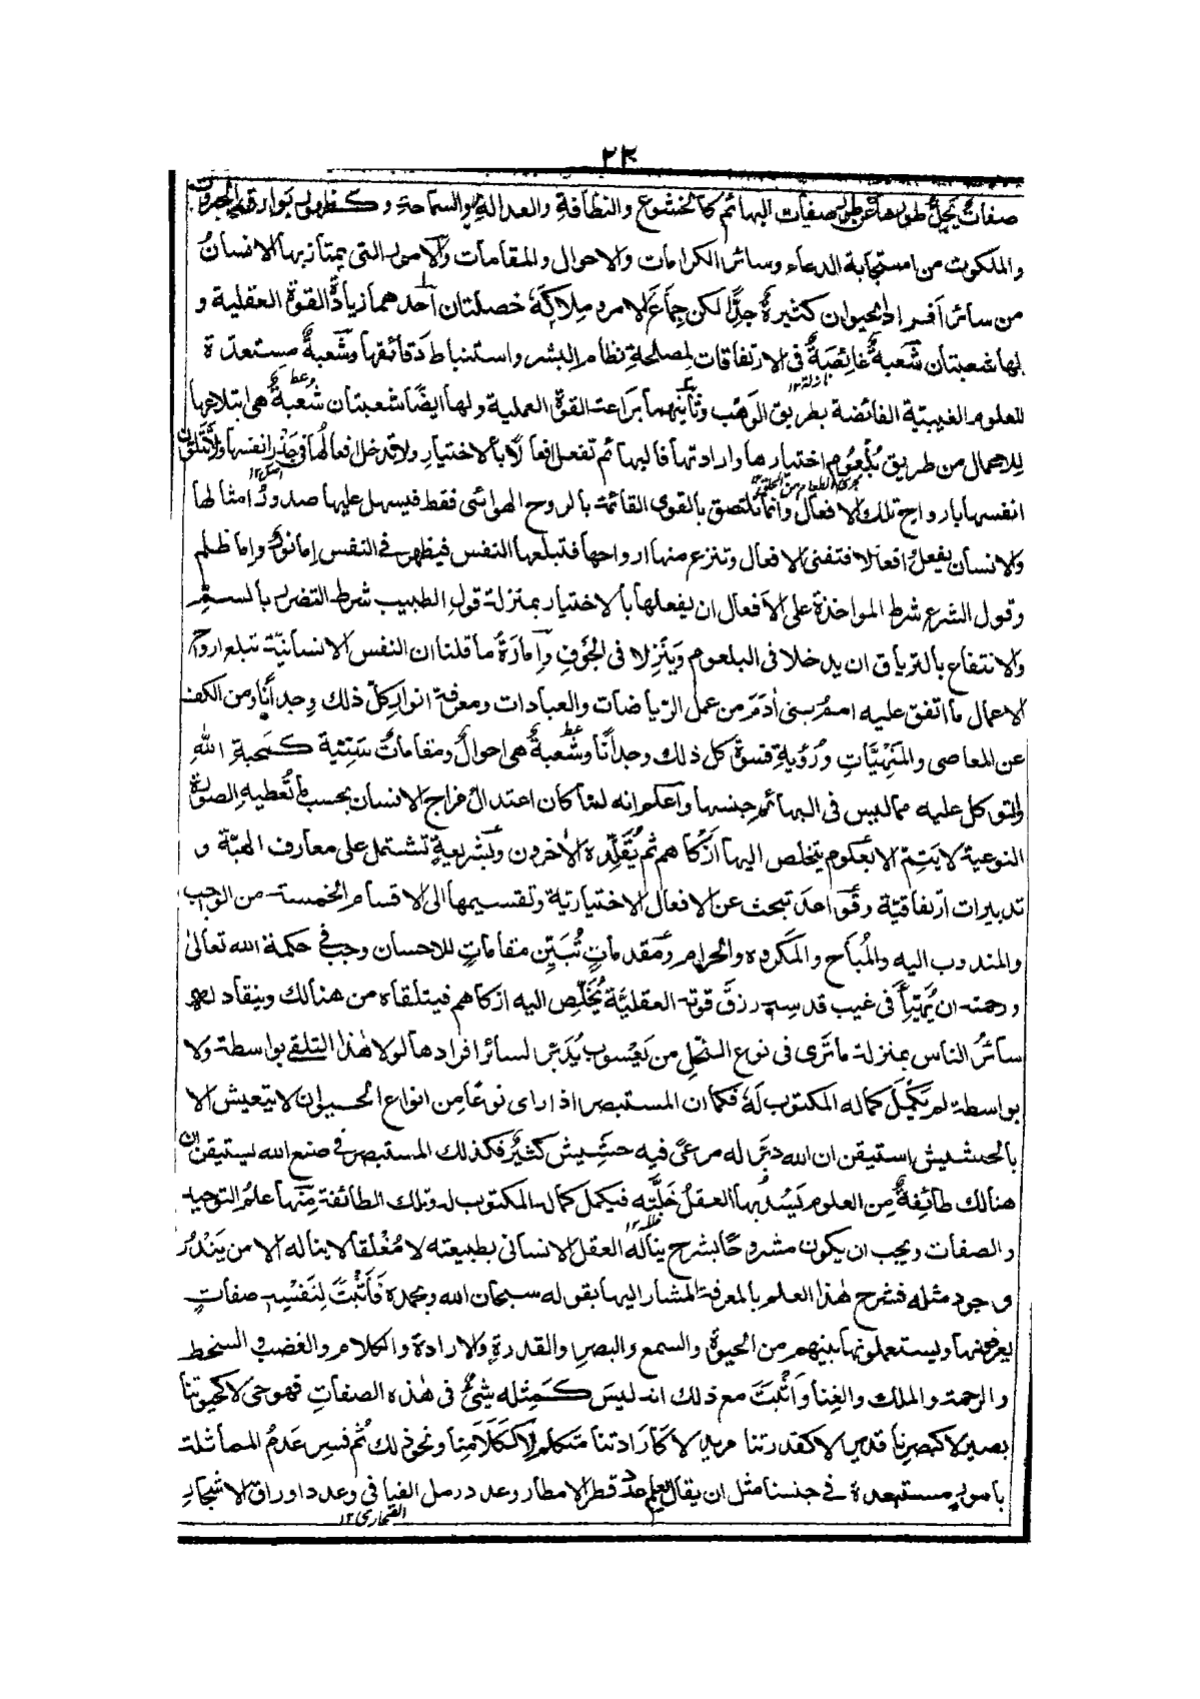 ٢٣
صفاتٌ يَجِلُّ طورها عن طور صفات البهائم كالخشوع والنظافة والعدالة والسماحة وكظهور بوارق الجبروت
والملكوت من استجابة الدعاء وسائر الكرامات والاحوال والمقامات والامور التى يمتاز بها الانسانُ
من سائر أفراد الحيوان كثيرةٌ جدًّا لكن جِمَاعَ الامر ومِلاكَهٗ خصلتان أحدهما زيادةُ القوة العقلية و
لها شعبتان شُعبةٌ غائصةٌ فى الارتفاقات لمصلحةِ نظام البشر واستنباط دقائقها وشُعبةٌ مستعدة
للعلوم الغيبيّة الفائضة بطريق الوَهْب وثانيهما بَراعة القوة العملية ولها أيضًا شعبتان شُعبةٌ هى ابتلاعها
للاعمال من طريق بُلْعُوم اختيارها وارادتها فالبهائم تفعل افعالًا بالاختيار ولا تدخل افعالُها فى جَذْر انفسها ولا تتلون
انفسها بارواح تلك الافعال وانما تلتصق بالقوى القائمة بالروح الهوائى فقط فيسهل عليها صدورُ امثالها
والانسان يفعل افعالا فتفنى الافعال وتنزع منها ارواحها فتبلعها النفس فيظهر فى النفس إما نورٌ وإما ظلم
وقول الشرع شرط المواخذة على الافعال ان يفعلها بالاختيار بمنزلة قولِ الطبيب شرط التضرر بالسم
والانتفاع بالترياق ان يدخلا فى البلعوم ويَنْزِلا فى الجَوْفِ وأمارَةُ ما قلنا ان النفس الانسانيّة تبلع ارواح
الاعمال ما اتفق عليه امم بنى اٰدَمَ من عمل الرّياضات والعبادات ومعرفة انوارِ كلّ ذلك وِجدانًا ومن الكف
عن المعاصى والمَنْهِيَّاتِ ورُؤيةِ قسوة كل ذلك وجدانًا وشُعبةٌ هى احوالٌ ومقاماتٌ سَنِيّة كمحبة اللّٰهِ
والتوكل عليه مما ليس فى البهائم جنسها واعلم انه لما كان اعتدال مزاج الانسان بحسب ما تُعطيهِ الصورة
النوعية لا يَتِمّ الا بعلومٍ يتخلص اليها ازكاهم ثم يُقَلِّدهُ الاٰخرون وبشريعةٍ تشتمل على معارف الهيّة و
تدبيرات ارتفاقيّة وقواعدَ تبحث عن الافعال الاختياريّة وتقسيمها الى الاقسام الخمسة من الوجب
والمندوب اليه والمُباح والمكروه والحرام ومقدماتٍ تُبَيّن مقاماتٍ للاحسان وجب فى حكمة الله تعالىٰ
ورحمته ان يُهَيِّأَ فى غيب قدسه رزقَ قوته العقليّة يُخْلِص اليه ازكاهم فيتلقاه من هنالك وينقاد له
سائرُ الناس بمنزلة ما ترٰى فى نوع النحل من يَعْسوبٍ يُدَبّر لسائر افرادها لولا هٰذا التلقى بواسطة ولا
بواسطة لم تَكْمِلْ كماله المكتوب لَهٗ فكما ان المستبصر اذا راى نوعًا من انواع الحيوان لا يتعيش الا
بالحشيش استيقن ان الله دبّر له مرعًى فيه حشيش كثيرٌ فكذلك المستبصر فى صنع الله يستيقن ان
هنالك طائفةً من العلوم يَسُدُّ بها العقلُ خَلَّتَه فيكمل كماله المكتوب له وتلك الطائفة مِنْها علمُ التوحيد
والصفات ويجب ان يكون مشروحًا بشرح ينالُه العقل الانسانى بطبيعته لا مُغْلقًا لا يناله الا من يَنْدُرُ
وجود مثله فشرح هٰذا العلم بالمعرفة المشار اليها بقوله سبحان الله وبحمده فَأَثْبَتَ لِنَفْسِهٖ صفاتٍ
يعرفونها ويستعملونها بينهم من الحيوة والسمع والبصر والقدرةِ والارادة والكلام والغضب والسخط
والرحمة والملك والغِنا وأَثْبَتَ مع ذلك انه ليسَ كَمِثْلِه شىٌٔ فى هٰذه الصفاتِ فهو حىٌ لا كحيوتنا
بصير لا كبصرنا قدير لا كقدرتنا مريد لا كارادتنا متكلم لا كَكَلَامِنا ونحو ذلك ثم فسر عَدمُ المماثلة
بامورٍ مستبعدة فى جنسنا مثل ان يقال يعلم عددَ قطر الامطار وعدد رمل الفيافى وعدد اوراق الاشجار
الصحارى ١٢